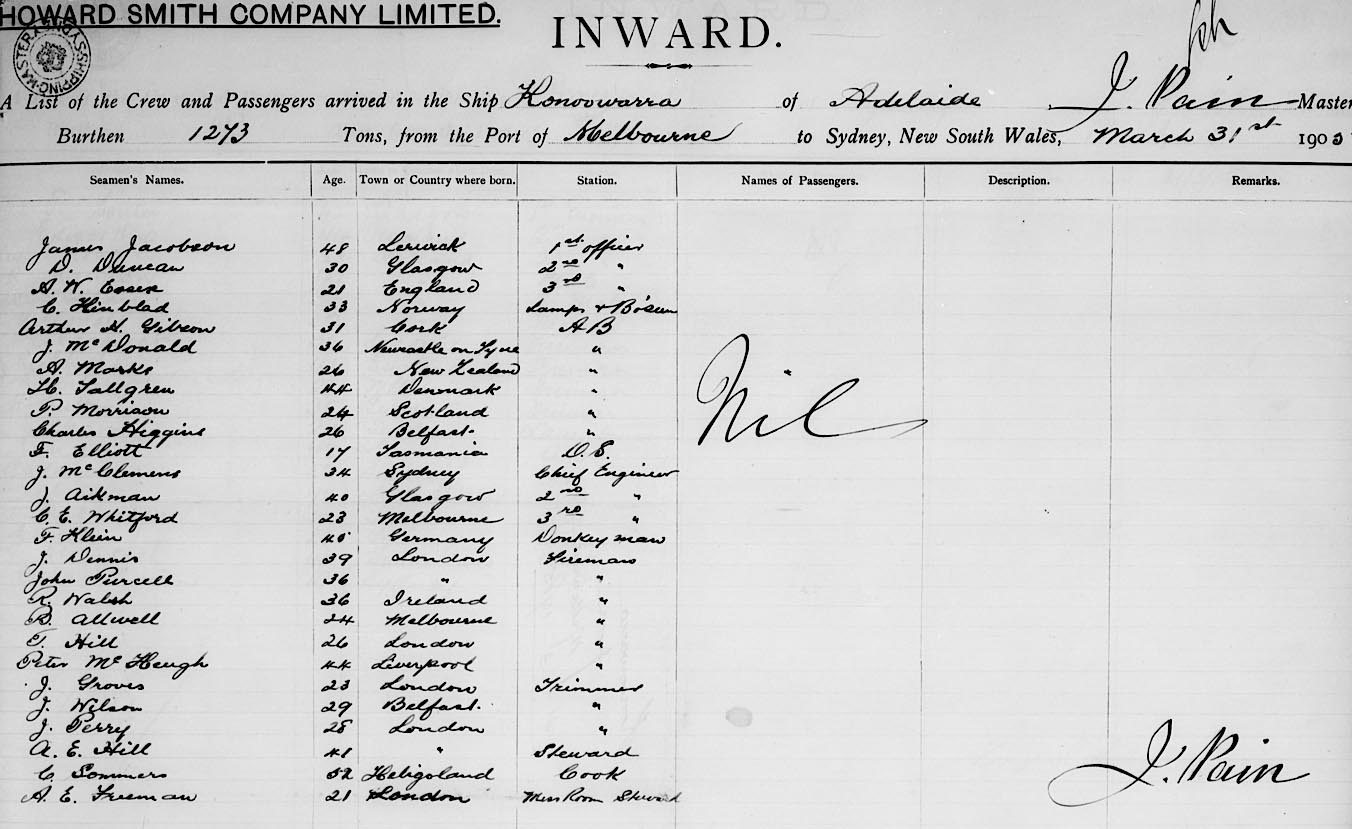 HOWARD SMITH COMPANY LIMITED.
INWARD.
A List of the Crew and Passengers arrived in the Ship Konoowarra of Adelaide, J. Pain Master
Burthen 1273 Tons, from the Port of Melbourne to Sydney, New South Wales, March 31st 190
Seamen's Names. Age. Town or Country where born. Station. Names of Passengers. Description. Remarks.
James Jacobson 48 Lerwick 1st officer
D. Duncan 30 Glasgow 2nd "
A. W. Essex 21 England 3rd "
C. Hinblad 33 Norway Lamps + Bo'sun
Arthur H. Gibson 31 Cork A B
J. McDonald 36 Newcastle on Tyne "
A. Marks 26 New Zealand "
H. Tallgren 44 Denmark "
P. Morrison 24 Scotland "
Nil
Charles Higgins 26 Belfast "
F. Elliott 17 Tasmania O.S.
J. McClemens 34 Sydney Chief Engineer
J. Aikman 40 Glasgow 2nd "
C. E. Whitford 23 Melbourne 3rd "
F. Klein Germany Donkeyman
J. Dennis 39 London Fireman
John Purcell 36 " "
R. Walsh 36 Ireland "
B. Allwell 24 Melbourne "
T. Hill 26 London "
Peter McHeugh 44 Liverpool "
J. Groves 23 London Trimmer
J. Wilson 29 Belfast. "
J. Perry 28 London "
A. E. Hill 41 " Steward
C. Sommers 52 Heligoland Cook
A. E. Freeman 21 London Mess Room Steward
J. Pain